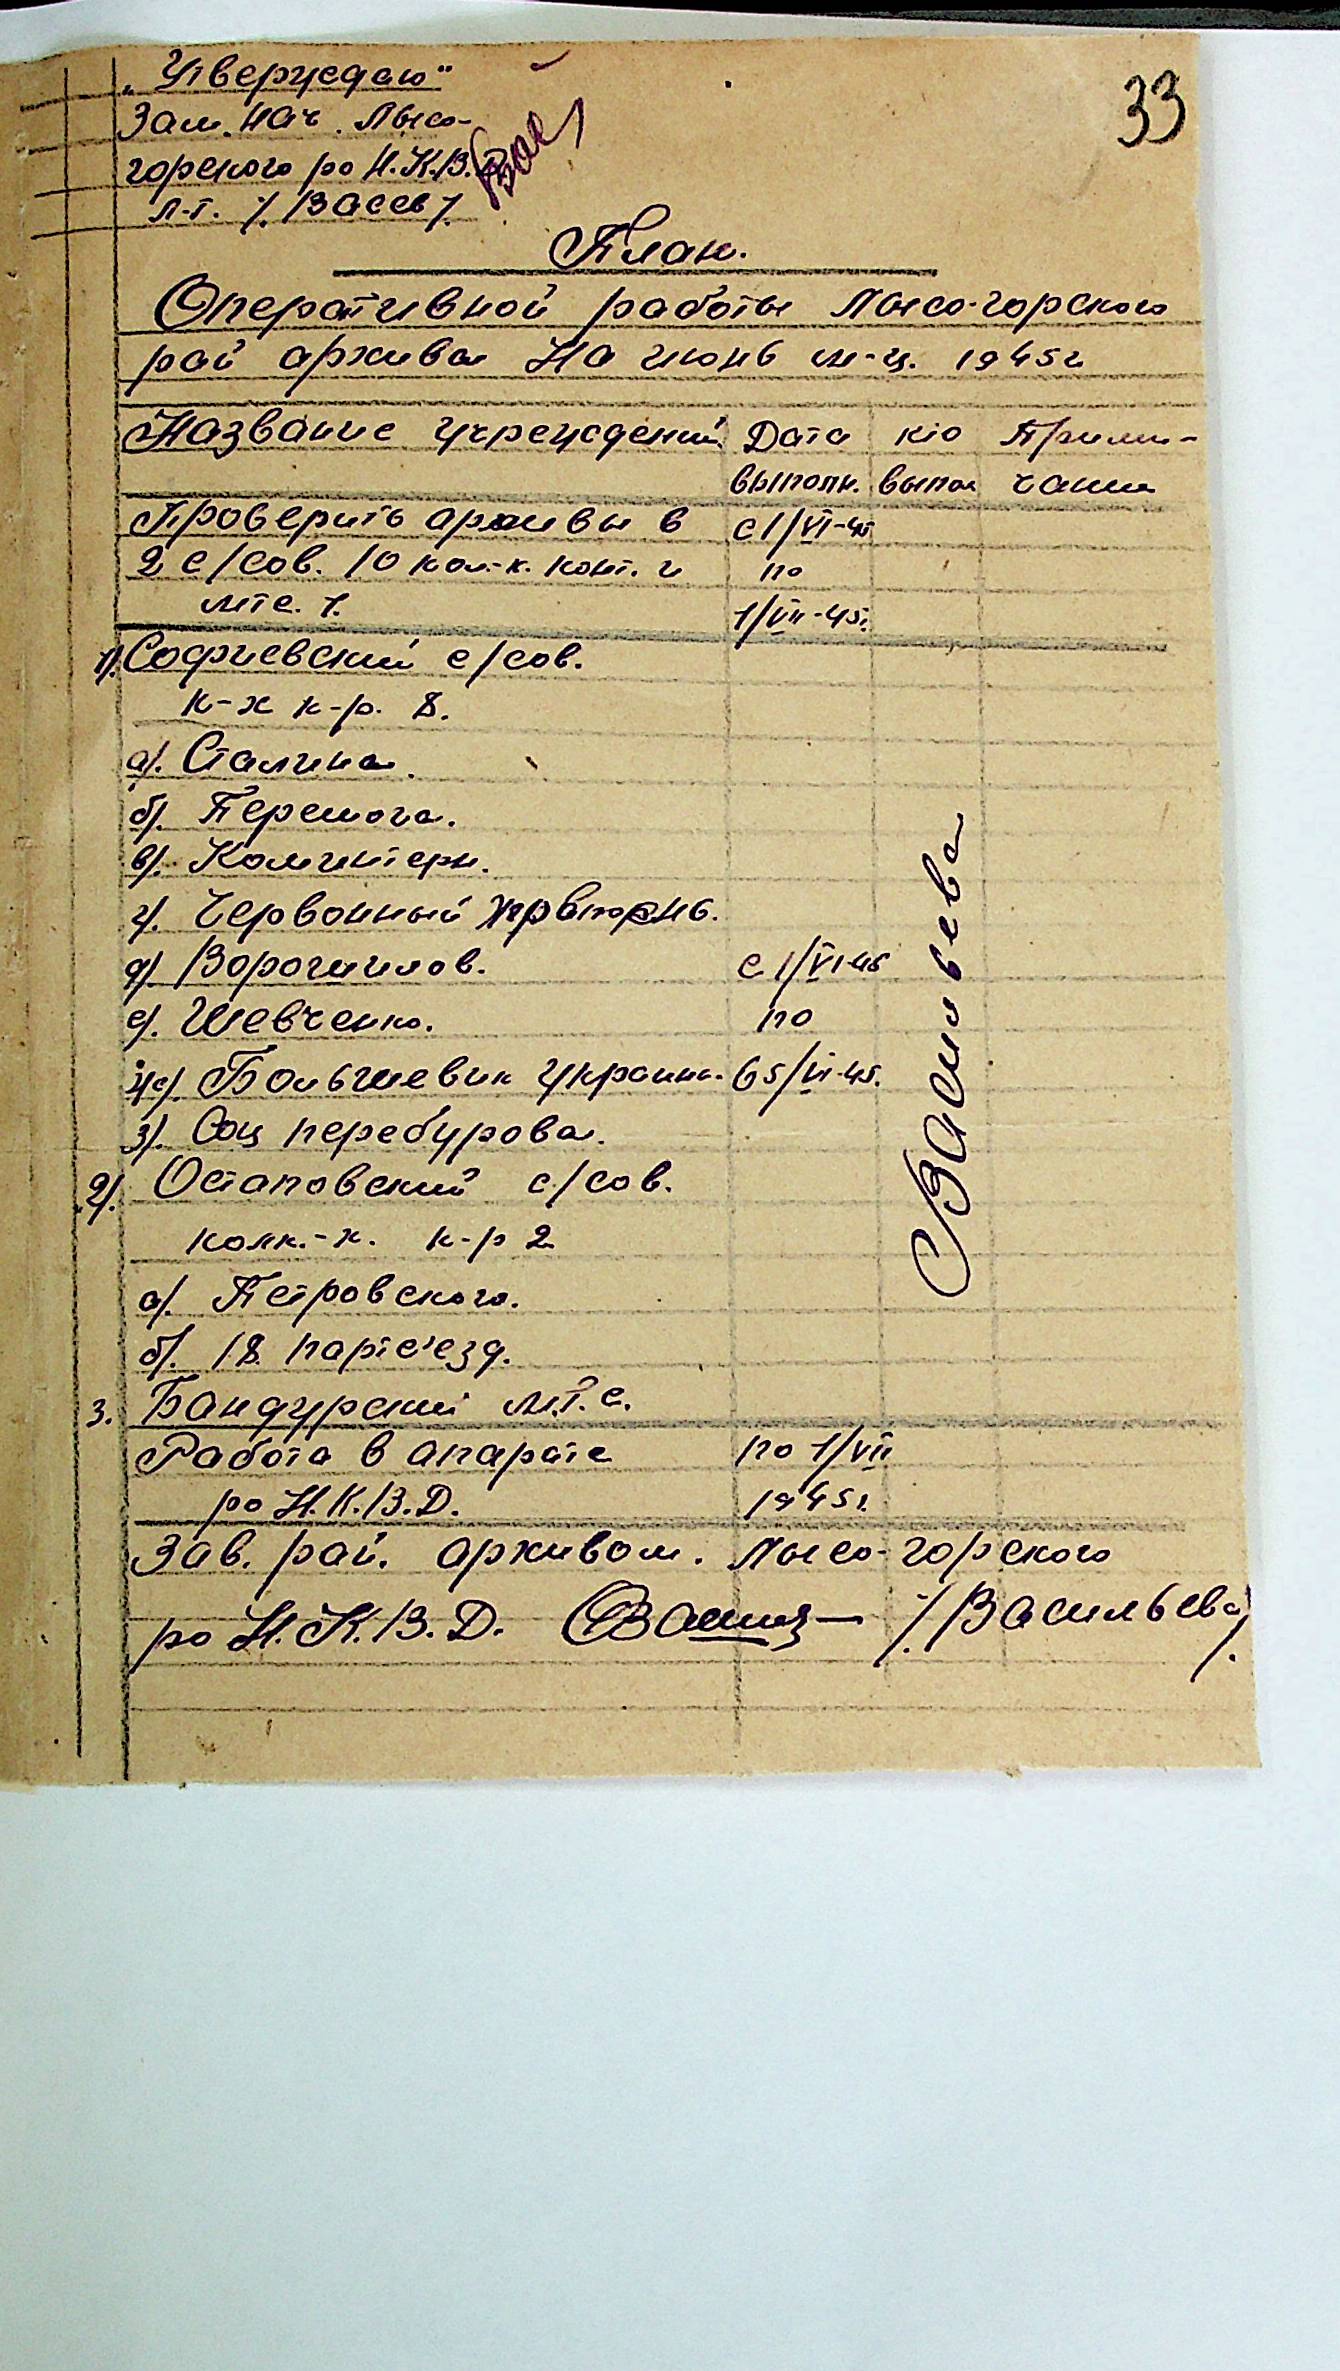 33
„Утверждаю“
Зам. Нач. Лысо-
горского ро Н.К.В.Д.
л-т. /. Васев /.
План.
Оперативной работы Лысо-горского
рай архива На июнь м-ц. 1945 г
Название учреждений Дата кто Приме-
выполн. выпол чание
Проверить архивы в с 1/VI-45
2 с/сов. 10 кол-х. конт. и по
мтс. 1. 1/VII-45г.
1). Софиевский с/сов.
к-х к-р. 8.
а). Сталина.
б). Перемога.
в). Коминтерн.
г). Червонный
д). Ворошилов. с 1/VI-45
е). Шевченко. по
ж). Большевик Украины. /VI-45.
з). Соц перебурова.
2). Остаповский с/сов.
колк.-х. к-р 2
а). Петровского.
б). 18. партс'езд.
Васильева
3. Бандурский м.т.с.
Работа в апарате по 1/VII
ро Н.К.В.Д. 1945г.
Зав. рай. архивом. Лысо-горского
ро Н.К.В.Д. /Васильева/.